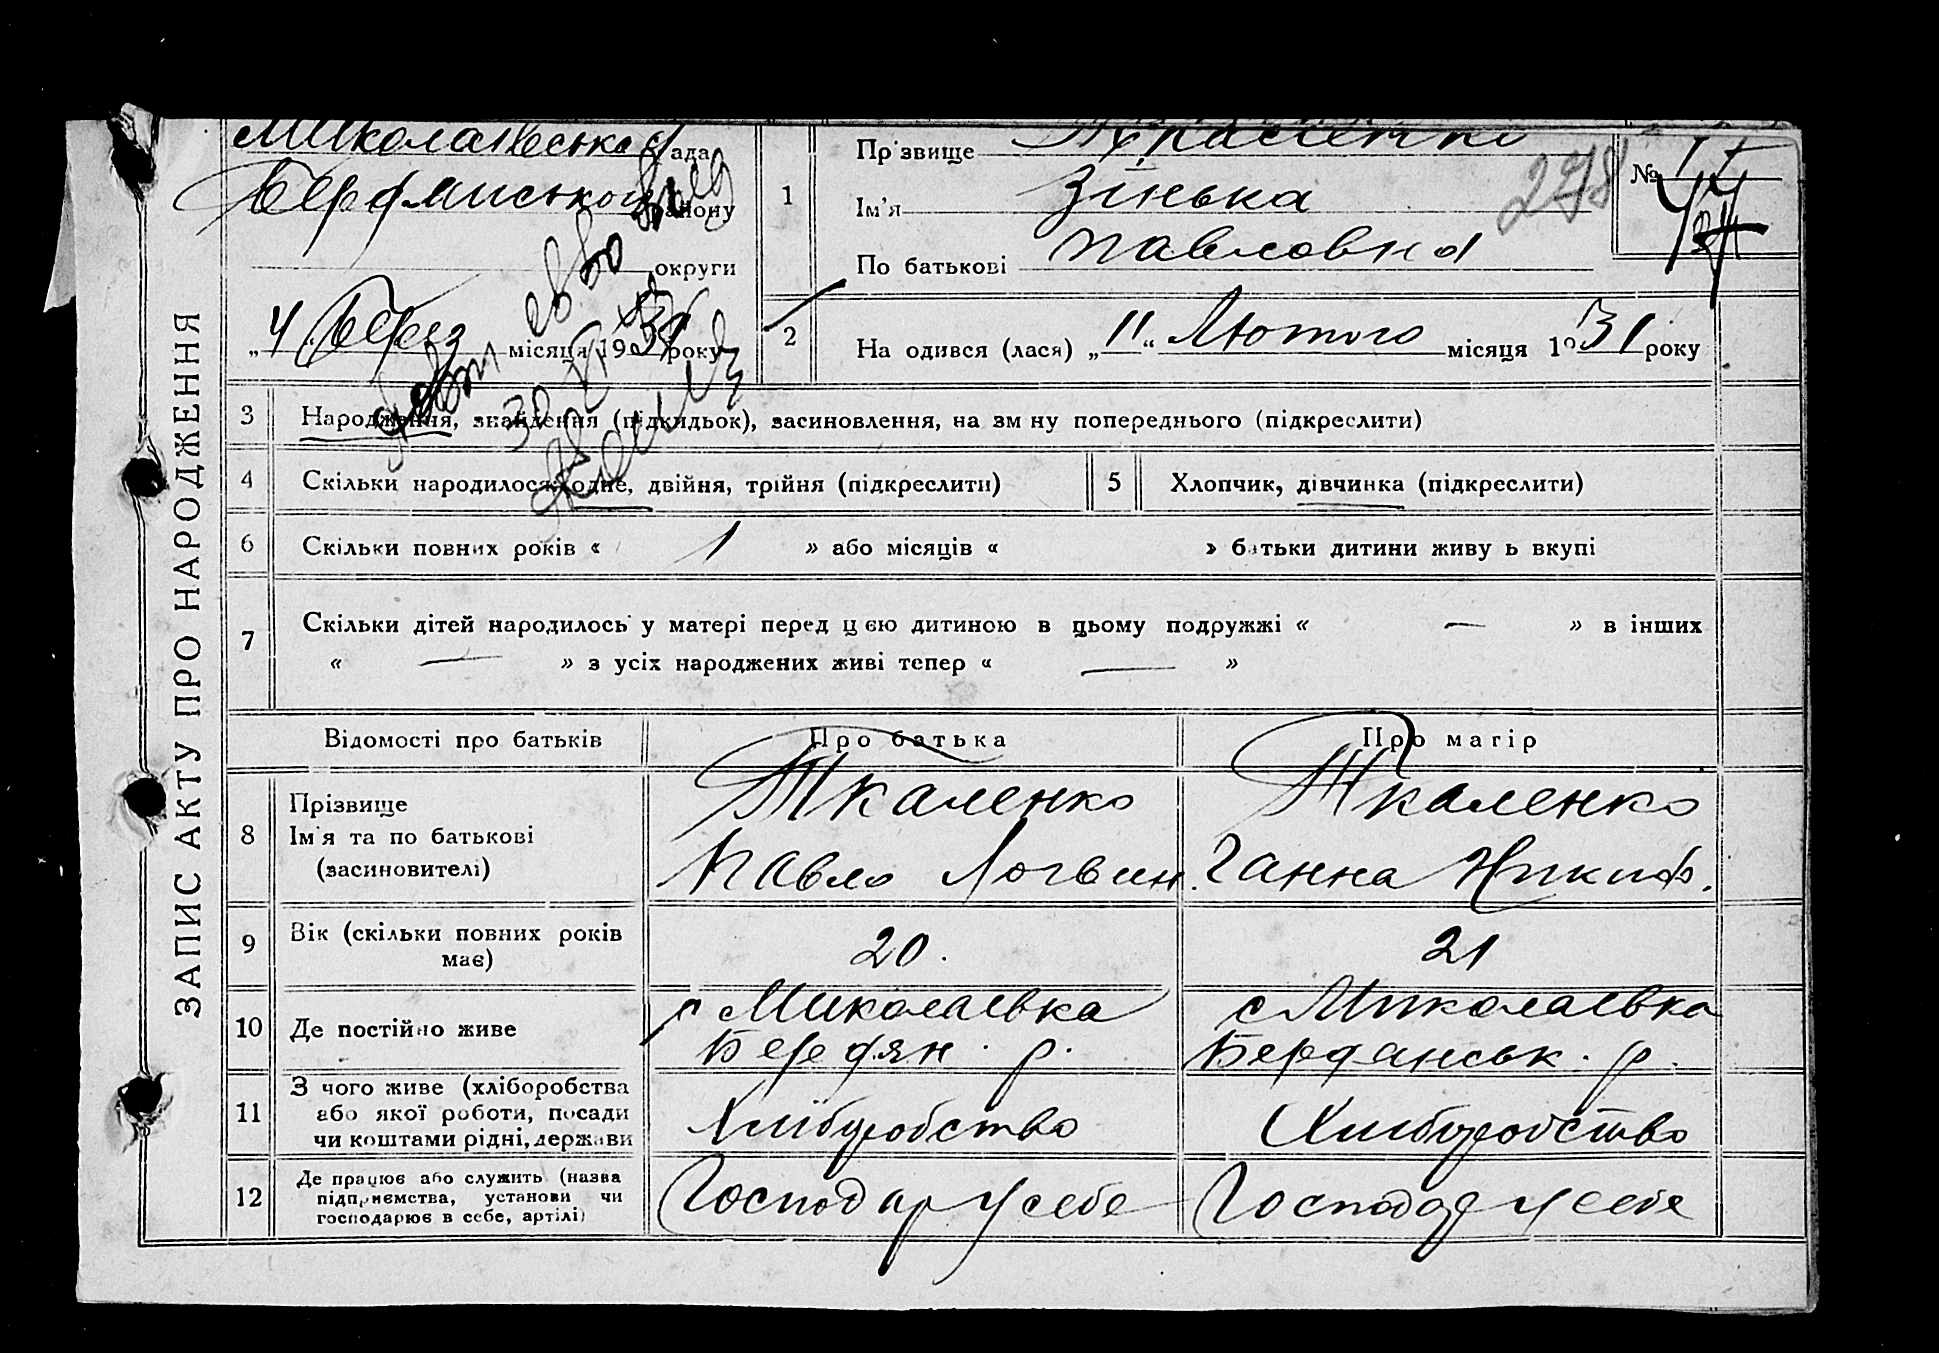 ЗАПИС АКТУ ПРО НАРОДЖЕННЯ
Миколаївська рада
Бердянського району
округи
„4 Берез місяця 1931 року
1
Пр звище Ткаленко
Ім’я Зінька
По батькові Павловна
278
№
2
На одився (лася) „11“ Лютого місяця 1931 року
3 Народження, знайдення (підкидьок), засиновлення, на зм ну попереднього (підкреслити)
4 Скільки народилося: одне, двійня, трійня (підкреслити) 5 Хлопчик, дівчинка (підкреслити)
6 Скільки повних років « 1 » або місяців « » батьки дитини живу ь вкупі
7 Скільки дітей народилось у матері перед цією дитиною в цьому подружжі « — » в інших
« — » з усіх народжених живі тепер « — »
Відомості про батьків Про батька Про матір
8 Прізвище
Ім’я та по батькові
(засиновителі)
Ткаленко
Павло Логвин.
Ткаленко
Ганна Никиф.
9 Вік (скільки повних років
має)
20.
21
10 Де постійно живе
с Миколаевка
Бердян. р.
с Миколаевка
Бердянськ. р.
11 З чого живе (хліборобства
або якої роботи, посади
чи коштами рідні, держави
Хліборобство
Хліборобство
12 Де працює або служить (назва
підприємства, установи чи
господарює в себе, артілі)
Господар у себе
Господар у себе